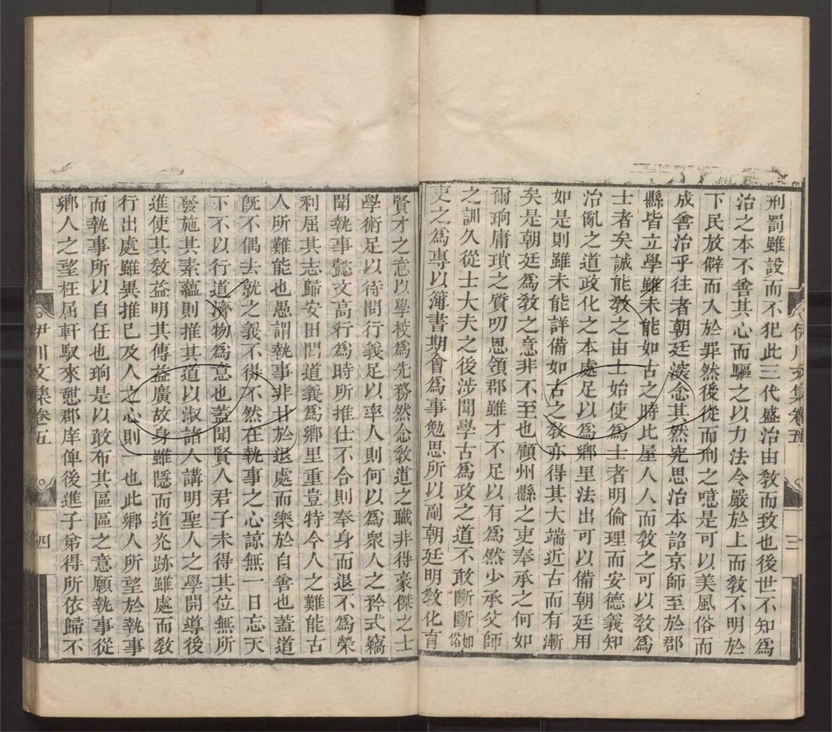 刑罰雖設而不犯此三代盛治由敎而致也後世不知爲
治之本不善其心而驅之以力法令嚴於上而敎不明於
下民放僻而入於罪然後從而刑之噫是可以美風俗而
成善治乎往者朝廷深念其然究思治本詔京師至於郡
縣皆立學雖未能如古之時比屋人人而敎之可以敎爲
士者矣誠能敎之由士始使爲士者明倫理而安德義知
治亂之道政化之本處足以爲鄉里法出可以備朝廷用
如是則雖未能詳備如古之敎亦得其大端近古而有漸
矣是朝廷爲敎之意非不至也顧州縣之吏奉承之何如
爾珦庸瑣之質叨恩領郡雖才不足以有爲然少承父師
之訓久從士大夫之後涉聞學古爲政之道不敢斷斷如俗
吏之爲專以簿書期會爲事勉思所以副朝廷明敎化育
伊川文集卷五
三
賢才之意以學校爲先務然念敎道之職非得豪傑之士
學術足以待問行義足以率人則何以爲衆人之矜式竊
聞執事懿文高行爲時所推仕不合則奉身而退不爲榮
利屈其志歸安田閭道義爲鄉里重豈特今人之難能古
人所難能也愚謂執事非甘於退處而樂於自善也蓋道
旣不偶去就之義不得不然在執事之心諒無一日忘天
下不以行道濟物爲意也蓋聞賢人君子未得其位無所
發施其素蘊則推其道以淑諸人講明聖人之學開導後
進使其敎益明其傳益廣故身雖隱而道光跡雖處而敎
行出處雖異推己及人之心則一也此鄉人所望於執事
而執事所以自任也珦是以敢布其區區之意願執事從
鄉人之望枉屈軒馭來憇郡庠俾後進子弟得所依歸不
伊川文集卷五
四